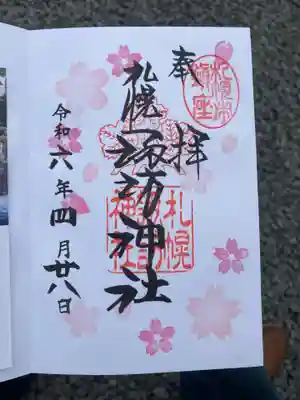 札幌市
鎮座
奉拝
札幌諏訪神社
札幌
諏訪
神社
令和六年四月廿八日